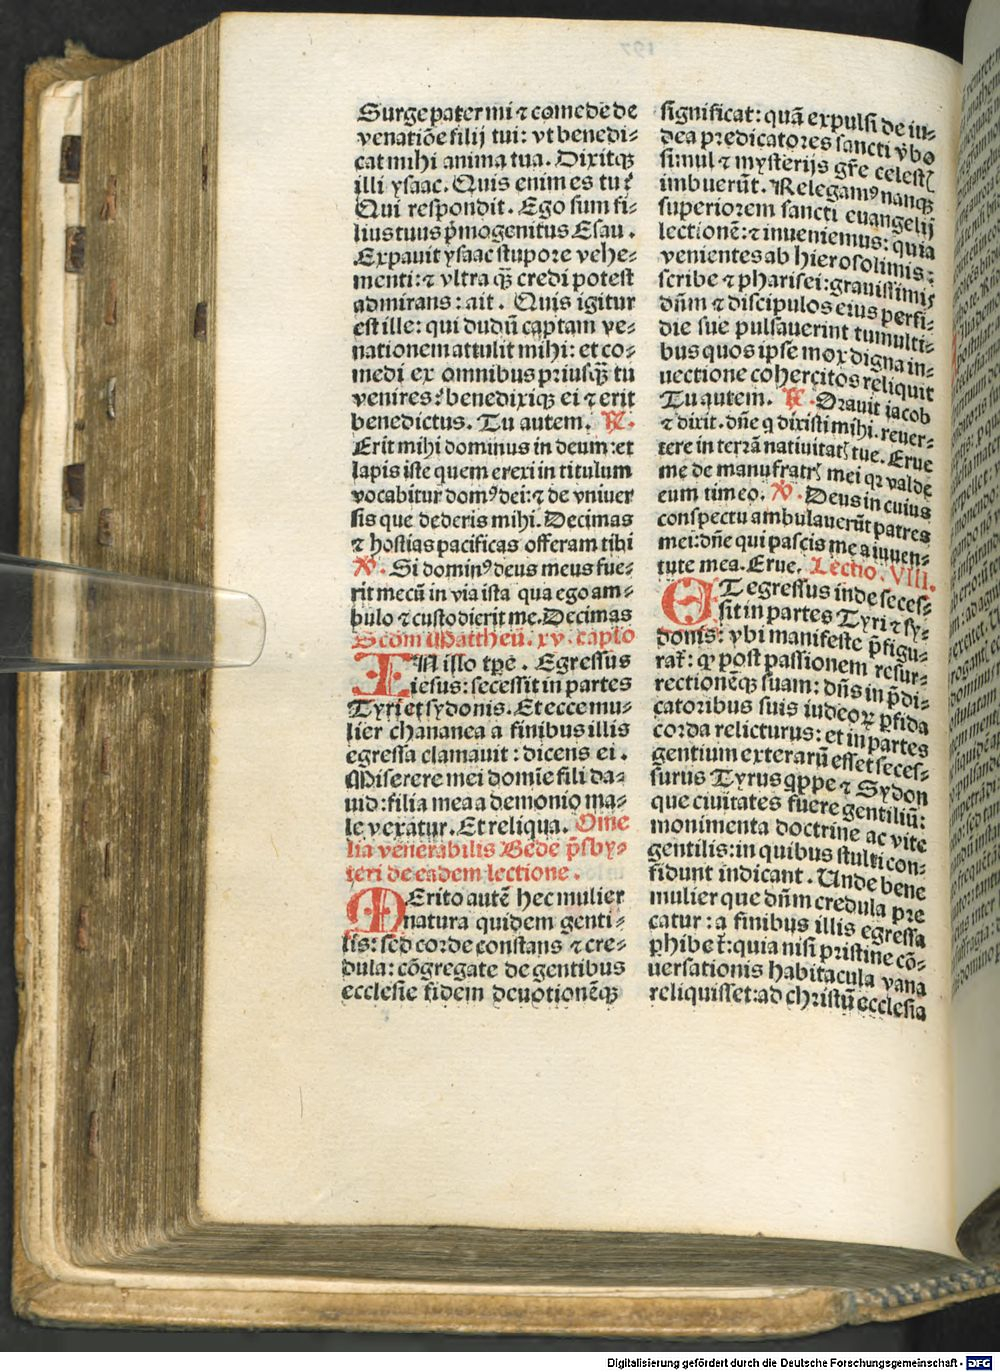 Surge pater mi ⁊ comede de
venatiōe filij tui: vt benedi-
cat mihi anima tua. Dixitqꝫ
illi ysaac. Quis enim es tu?
Qui respondit. Ego sum fi-
lius tuus p̄mogenitus Esau.
Expauit ysaac stupore vehe-
menti: ⁊ vltra qꝫ̄ credi potest
admirans: ait. Quis igitur
est ille: qui dudū captam ve-
nationem attulit mihi: et co-
medi ex omnibus priusqꝫ̄ tu
venires: benedixiqꝫ ei ⁊ erit
benedictus. Tu autem. ℟.
Erit mihi dominus in deum: et
lapis iste quem erexi in titulum
vocabitur domꝰ dei: ⁊ de vniuer
sis que dederis mihi. Decimas
⁊ hostias pacificas offeram tibi
℣. Si dominꝰ deus meus fue-
rit mecū in via ista qua ego am-
bulo ⁊ custodierit me. Decimas
Scdm Mattheū. xv. capto
IN illo tp̄e. Egressus
iesus: secessit in partes
Tyri et sydonis. Et ecce mu-
lier chananea a finibus illis
egressa clamauit: dicens ei.
Miserere mei domīe fili da-
uid: filia mea a demonio ma-
le vexatur. Et reliqua. Ome
lia venerabilis Bede p̄sby-
teri de eadem lectione.
MErito autē hec mulier
natura quidem genti-
lis: sed corde constans ⁊ cre-
dula: cōgregate de gentibus
ecclesie fidem deuotionēqꝫ
significat: quā expulsi de iu-
dea predicatores sancti v̄bo
simul ⁊ mysterijs gr̄e celestꝭ
imbuerūt. Relegamꝰ nanqꝫ
superiorem sancti euangelij
lectionē: ⁊ inueniemus: quia
venientes ab hierosolimis:
scribe ⁊ pharisei: grauissimis
dn̄m ⁊ discipulos eius perfi-
die sue pulsauerint tumulti-
bus quos ipse mox digna in-
uectione cohercitos reliquit
Tu autem. ℟. Orauit iacob
⁊ dixit. dn̄e q dixisti mihi. reuer-
tere in terrā natiuitatꝭ tue. Erue
me de manu fratrꝭ mei qꝛ valde
eum timeo. ℣. Deus in cuius
conspectu ambulauerūt patres
mei: dn̄e qui pascis me a iuuen-
tute mea. Erue. Lectio. VIII.
ET egressus inde seces-
sit in partes Tyri ⁊ sy-
donis: vbi manifeste p̄figu-
rat̄: qꝙ post passionem resur-
rectionēqꝫ suam: dn̄s in p̄di-
catoribus suis iudeoꝝ ꝑfida
corda relicturus: et in partes
gentium exterarū esset seces-
surus Tyrus qꝓpe ⁊ Sydon
que ciuitates fuere gentiliū:
monimenta doctrine ac vite
gentilis: in quibus stulti con-
fidunt indicant. Unde bene
mulier que dn̄m credula pre
catur: a finibus illis egressa
ꝑhibet̄: quia nisi pristine cō-
uersationis habitacula vana
reliquisset: ad christū ecclesia
Digitalisierung gefördert durch die Deutsche Forschungsgemeinschaft - DFG